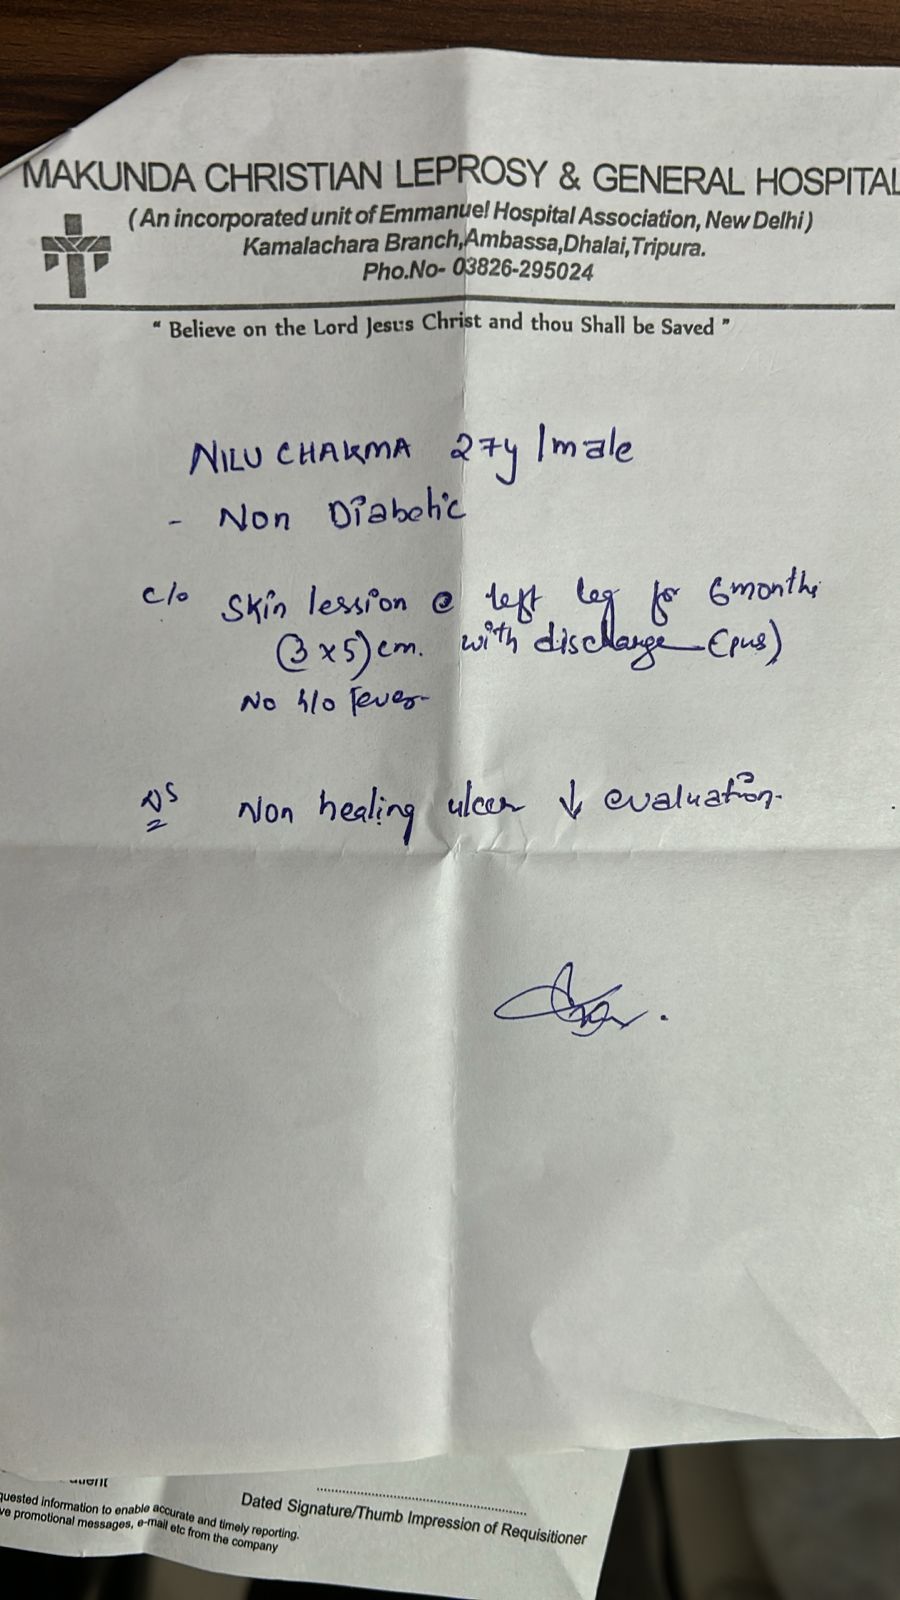 MAKUNDA CHRISTIAN LEPROSY & GENERAL HOSPITAL
(An incorporated unit of Emmanuel Hospital Association, New Delhi)
Kamalachara Branch,Ambassa,Dhalai,Tripura.
Pho.No- 03826-295024
" Believe on the Lord Jesus Christ and thou Shall be Saved "
NILU CHAKMA 27y/male
- Non Diabetic
c/o Skin lession @ left leg for 6months
(3x5)cm. with discharge (pus)
No h/o Fever
Non healing ulcer ↓ evaluation.
Dated Signature/Thumb Impression of Requisitioner
quested information to enable accurate and timely reporting.
ve promotional messages, e-mail etc from the company